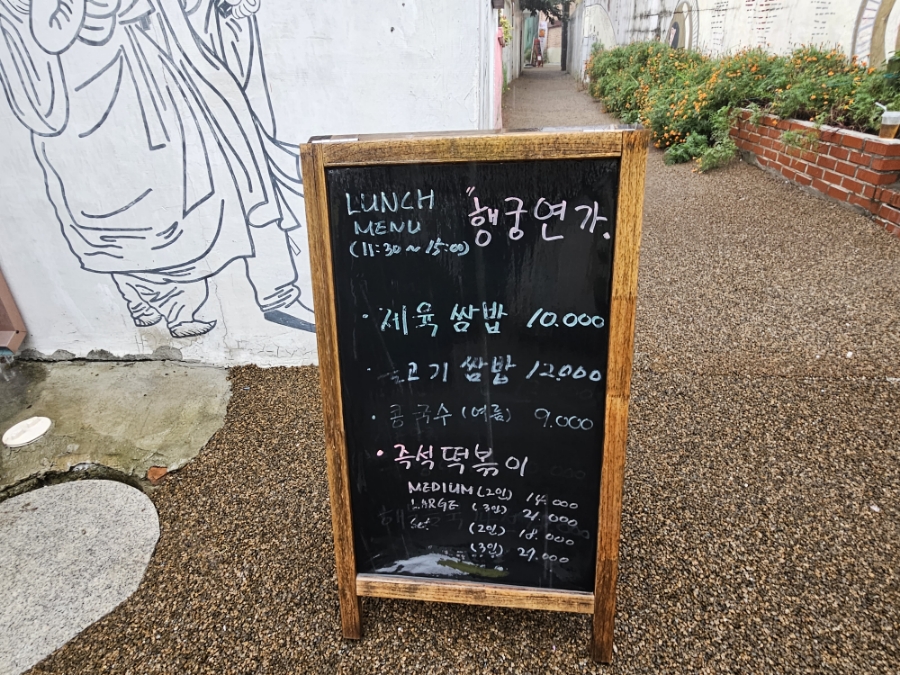 LUNCH
MENU
(11:30~15:00)
"행궁연가.
· 제육쌈밥 10.000
· 고기쌈밥 12.000
· 콩국수 (여름) 9.000
· 즉석떡볶이
MEDIUM (2인) 14.000
LARGE (3인) 21.000
Set (2인) 18.000
(3인) 27.000